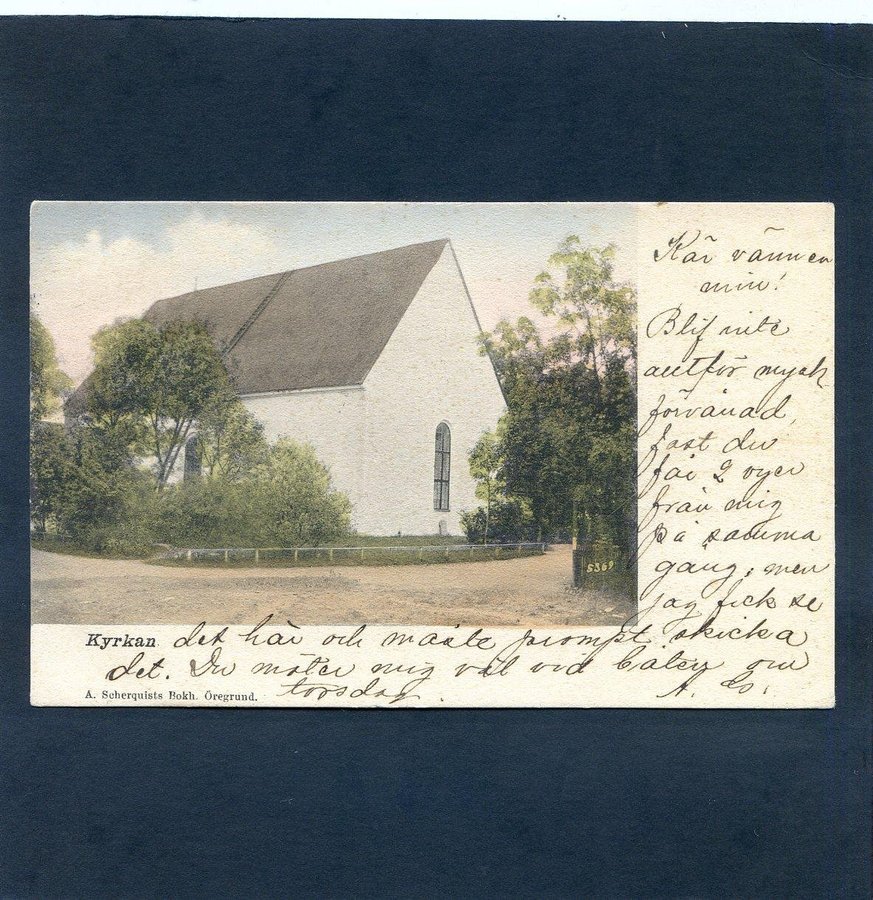 Kär vännen
min!
Blif inte
alltför mycket
förvånad,
fast du
får 2 vyer
från mig
på samma
gång, men
jag fick se
5369
Kyrkan. det här och måste prompt skicka
det. Du möter mig väl vid båten om
A. Scherquists Bokh. Öregrund. torsdag.
A.